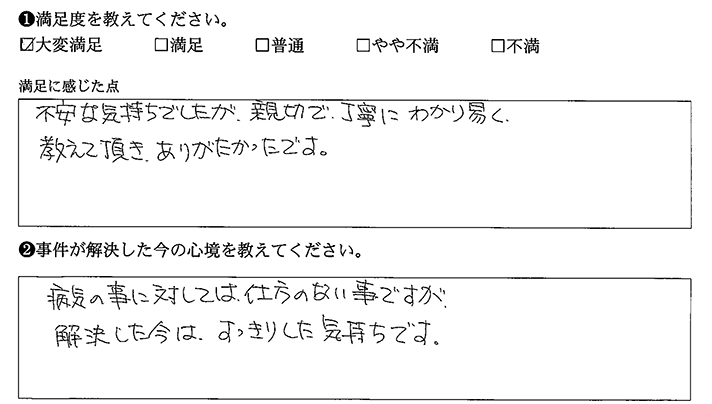 ❶満足度を教えてください。
☑大変満足 □満足 □普通 □やや不満 □不満
満足に感じた点
不安な気持ちでしたが、親切で、丁寧に わかり易く、
教えて頂き、ありがたかったです。
❷事件が解決した今の心境を教えてください。
病気の事に対しては、仕方のない事ですが、
解決した今は、すっきりした気持ちです。